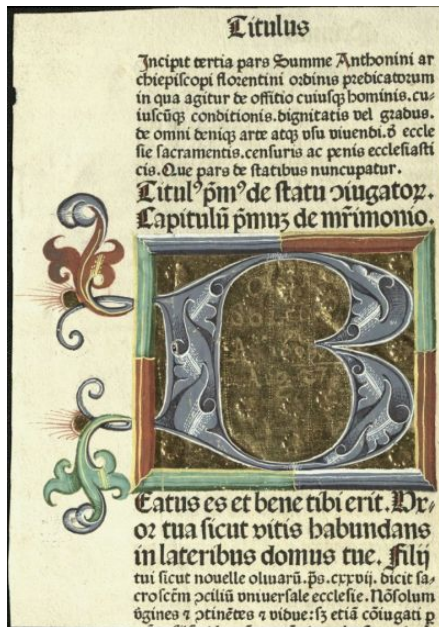 Titulus
Incipit tertia pars Summe Anthonini ar
chiepiscopi florentini ordinis predicatorum
in qua agitur de offitio cuiusqꝫ hominis. cu⸗
iuscūqꝫ conditionis. dignitatis vel gradus.
de omni deniqꝫ arte atqꝫ vsu viuendi. ⁊ eccle
sie sacramentis. censuris ac penis ecclesiasti
cis. Que pars de statibus nuncupatur.
Titulꝰ p̄mꝰ de statu ↄiugatoꝝ.
Capitulū p̄muꝫ de mr̄imonio.
B
Eatus es et bene tibi erit. Vx⸗
or tua sicut vitis habundans
in lateribus domus tue. Filij
tui sicut nouelle oliuarū. ps̄. cxxvij. dicit sa⸗
crosct̄m ↄciliū vniuersale ecclesie. Nōsolum
v̄gines ⁊ ↄtinētes ⁊ vidue: sꝫ etiā cōiugati ꝑ